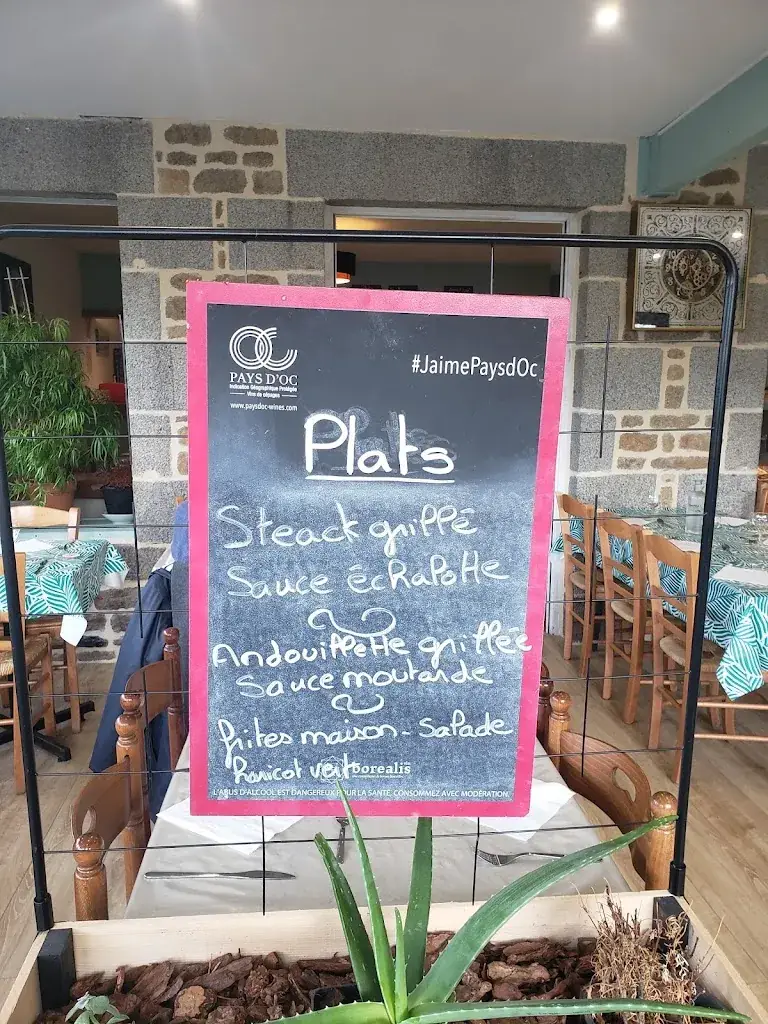 PAYS D'OC
Indication Géographique Protégée
Vins de cépages
www.paysdoc-wines.com
#JaimePaysdOc
Plats
Steack grillé
Sauce échalotte
Andouillette grillée
Sauce moutarde
frites maison - Salade
haricot vert
borealis
L'ABUS D'ALCOOL EST DANGEREUX POUR LA SANTÉ. CONSOMMEZ AVEC MODÉRATION.